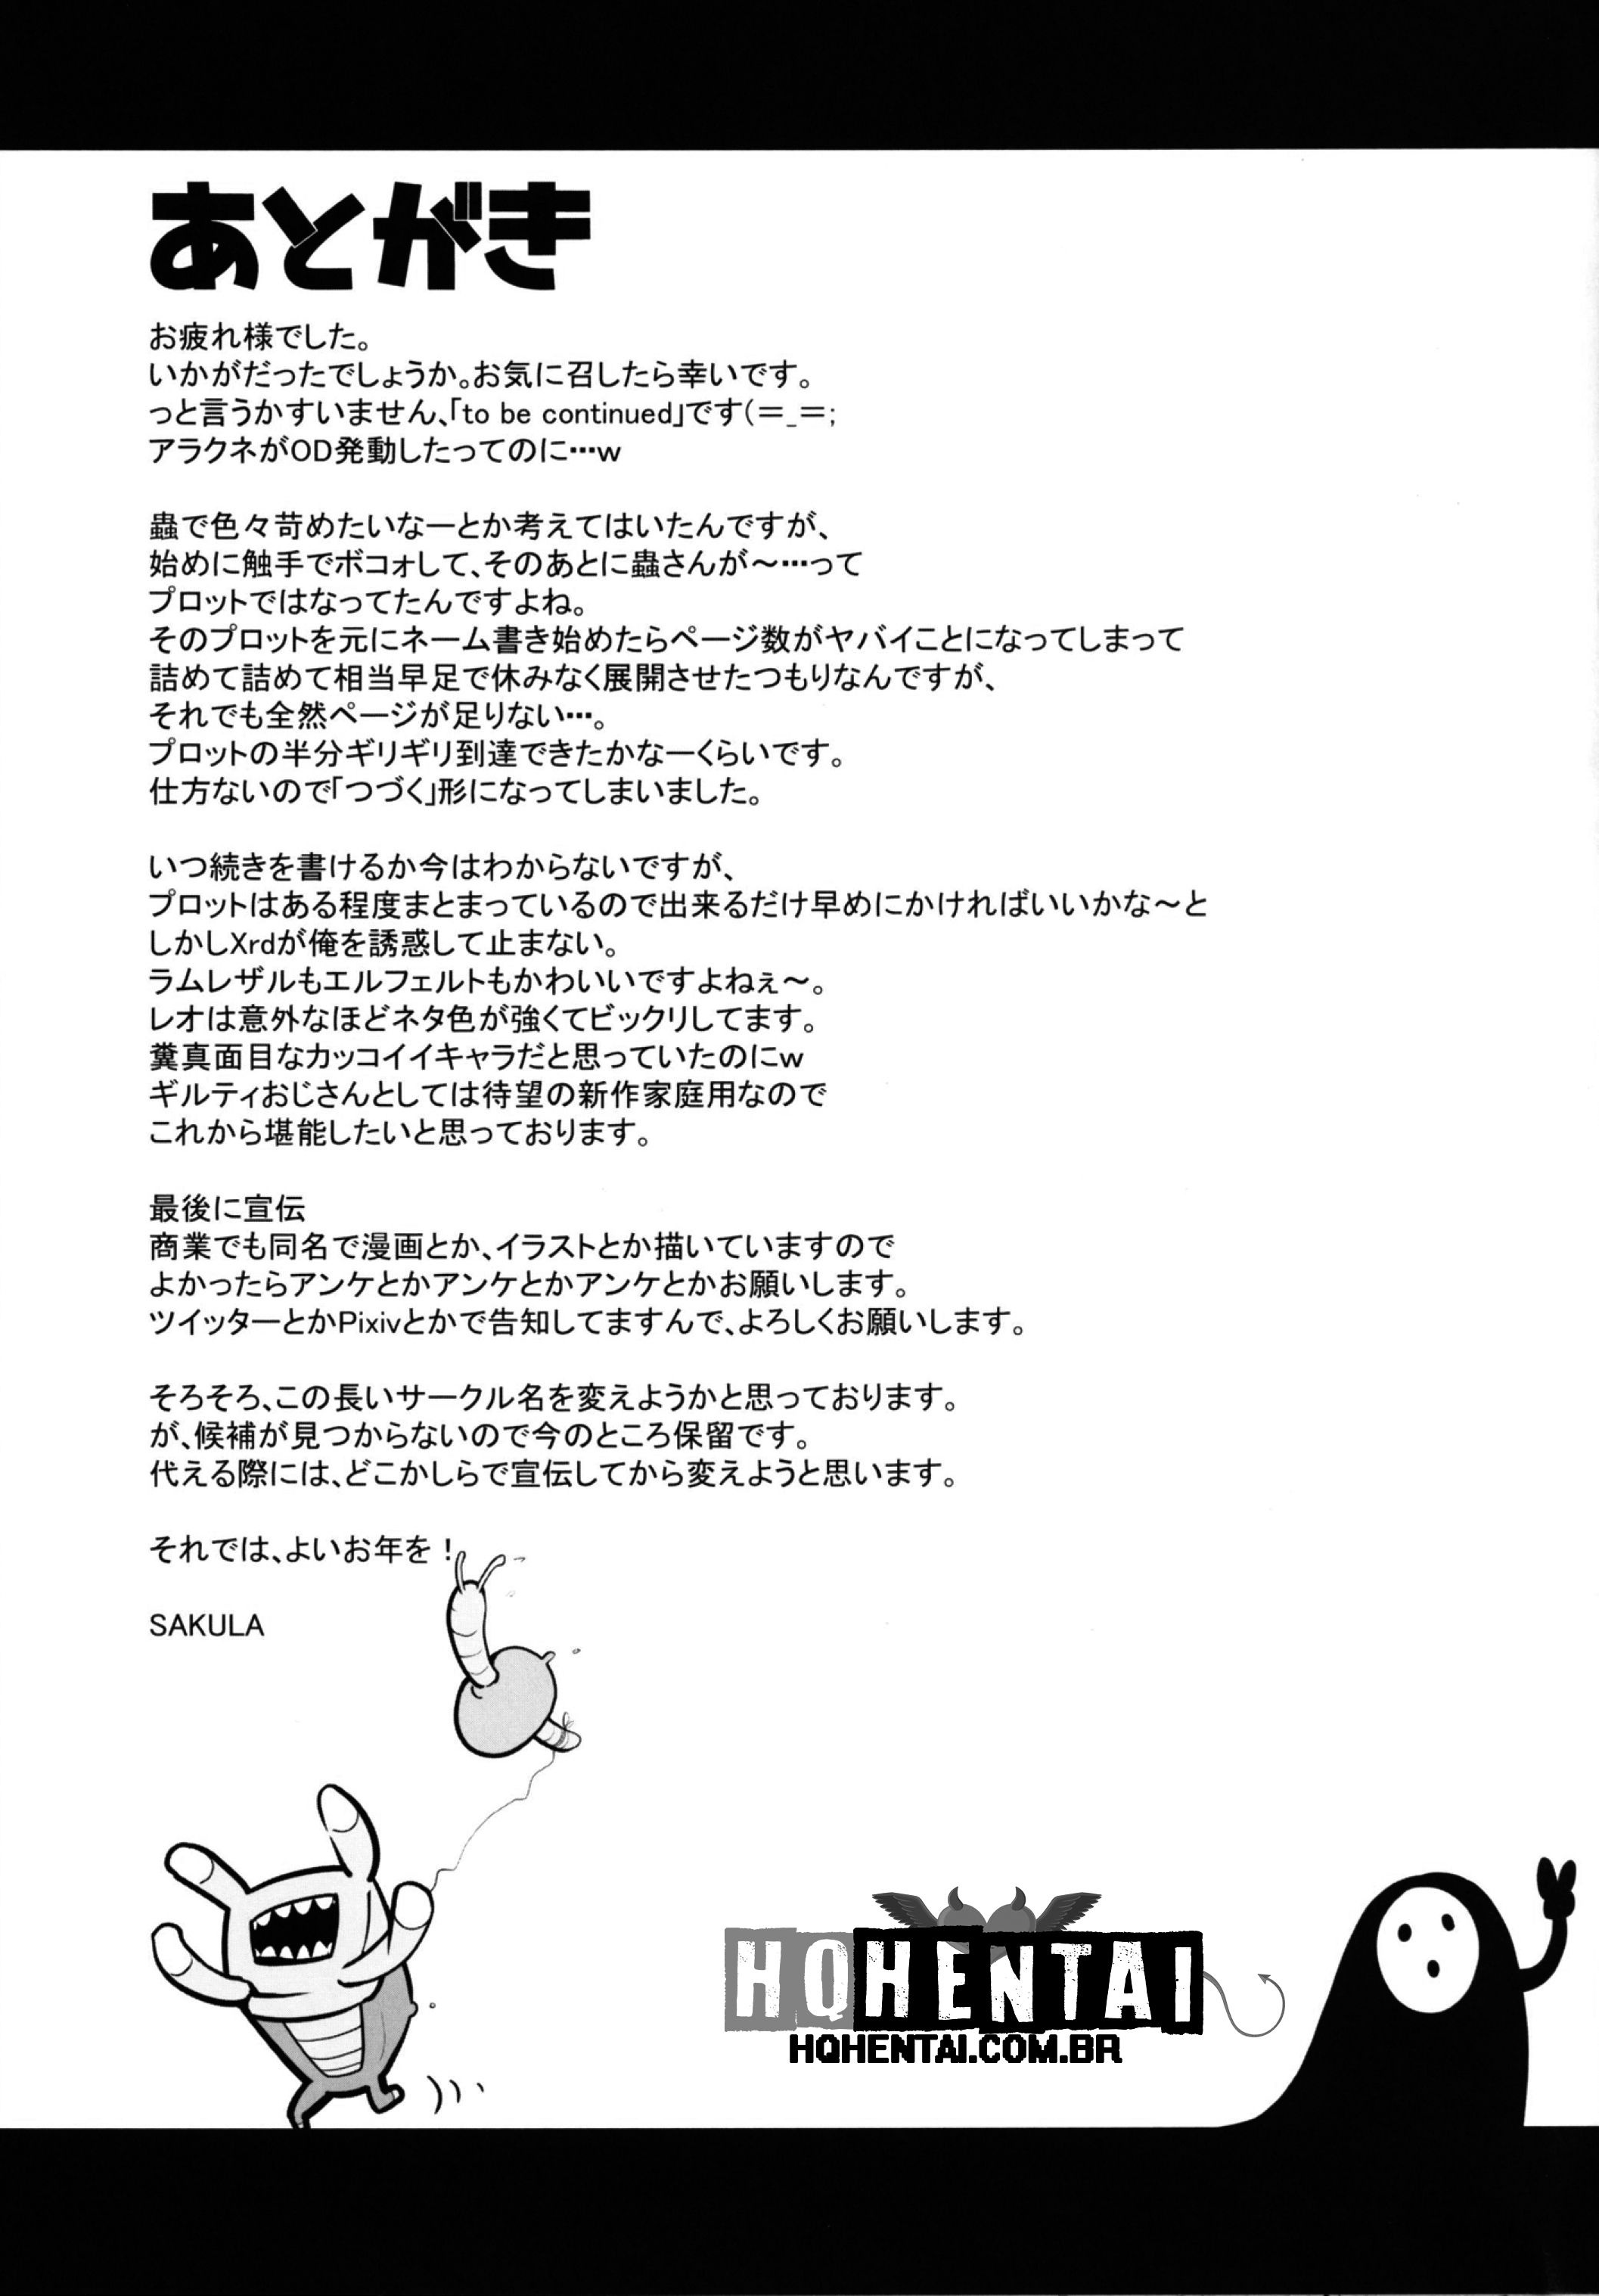 あとがき
お疲れ様でした。
いかがだったでしょうか。お気に召したら幸いです。
っと言うかすいません、「to be continued」です(＝_＝;
アラクネがOD発動したってのに…w
蟲で色々苛めたいなーとか考えてはいたんですが、
始めに触手でボコォして、そのあとに蟲さんが～…って
プロットではなってたんですよね。
そのプロットを元にネーム書き始めたらページ数がヤバイことになってしまって
詰めて詰めて相当早足で休みなく展開させたつもりなんですが、
それでも全然ページが足りない…。
プロットの半分ギリギリ到達できたかなーくらいです。
仕方ないので「つづく」形になってしまいました。
いつ続きを書けるか今はわからないですが、
プロットはある程度まとまっているので出来るだけ早めにかければいいかな～と
しかしXrdが俺を誘惑して止まない。
ラムレザルもエルフェルトもかわいいですよねぇ～。
レオは意外なほどネタ色が強くてビックリしてます。
糞真面目なカッコイイキャラだと思っていたのにw
ギルティおじさんとしては待望の新作家庭用なので
これから堪能したいと思っております。
最後に宣伝
商業でも同名で漫画とか、イラストとか描いていますので
よかったらアンケとかアンケとかアンケとかお願いします。
ツイッターとかPixivとかで告知してますんで、よろしくお願いします。
そろそろ、この長いサークル名を変えようかと思っております。
が、候補が見つからないので今のところ保留です。
代える際には、どこかしらで宣伝してから変えようと思います。
それでは、よいお年を！
SAKULA
HQHENTAI
HQHENTAI.COM.BR